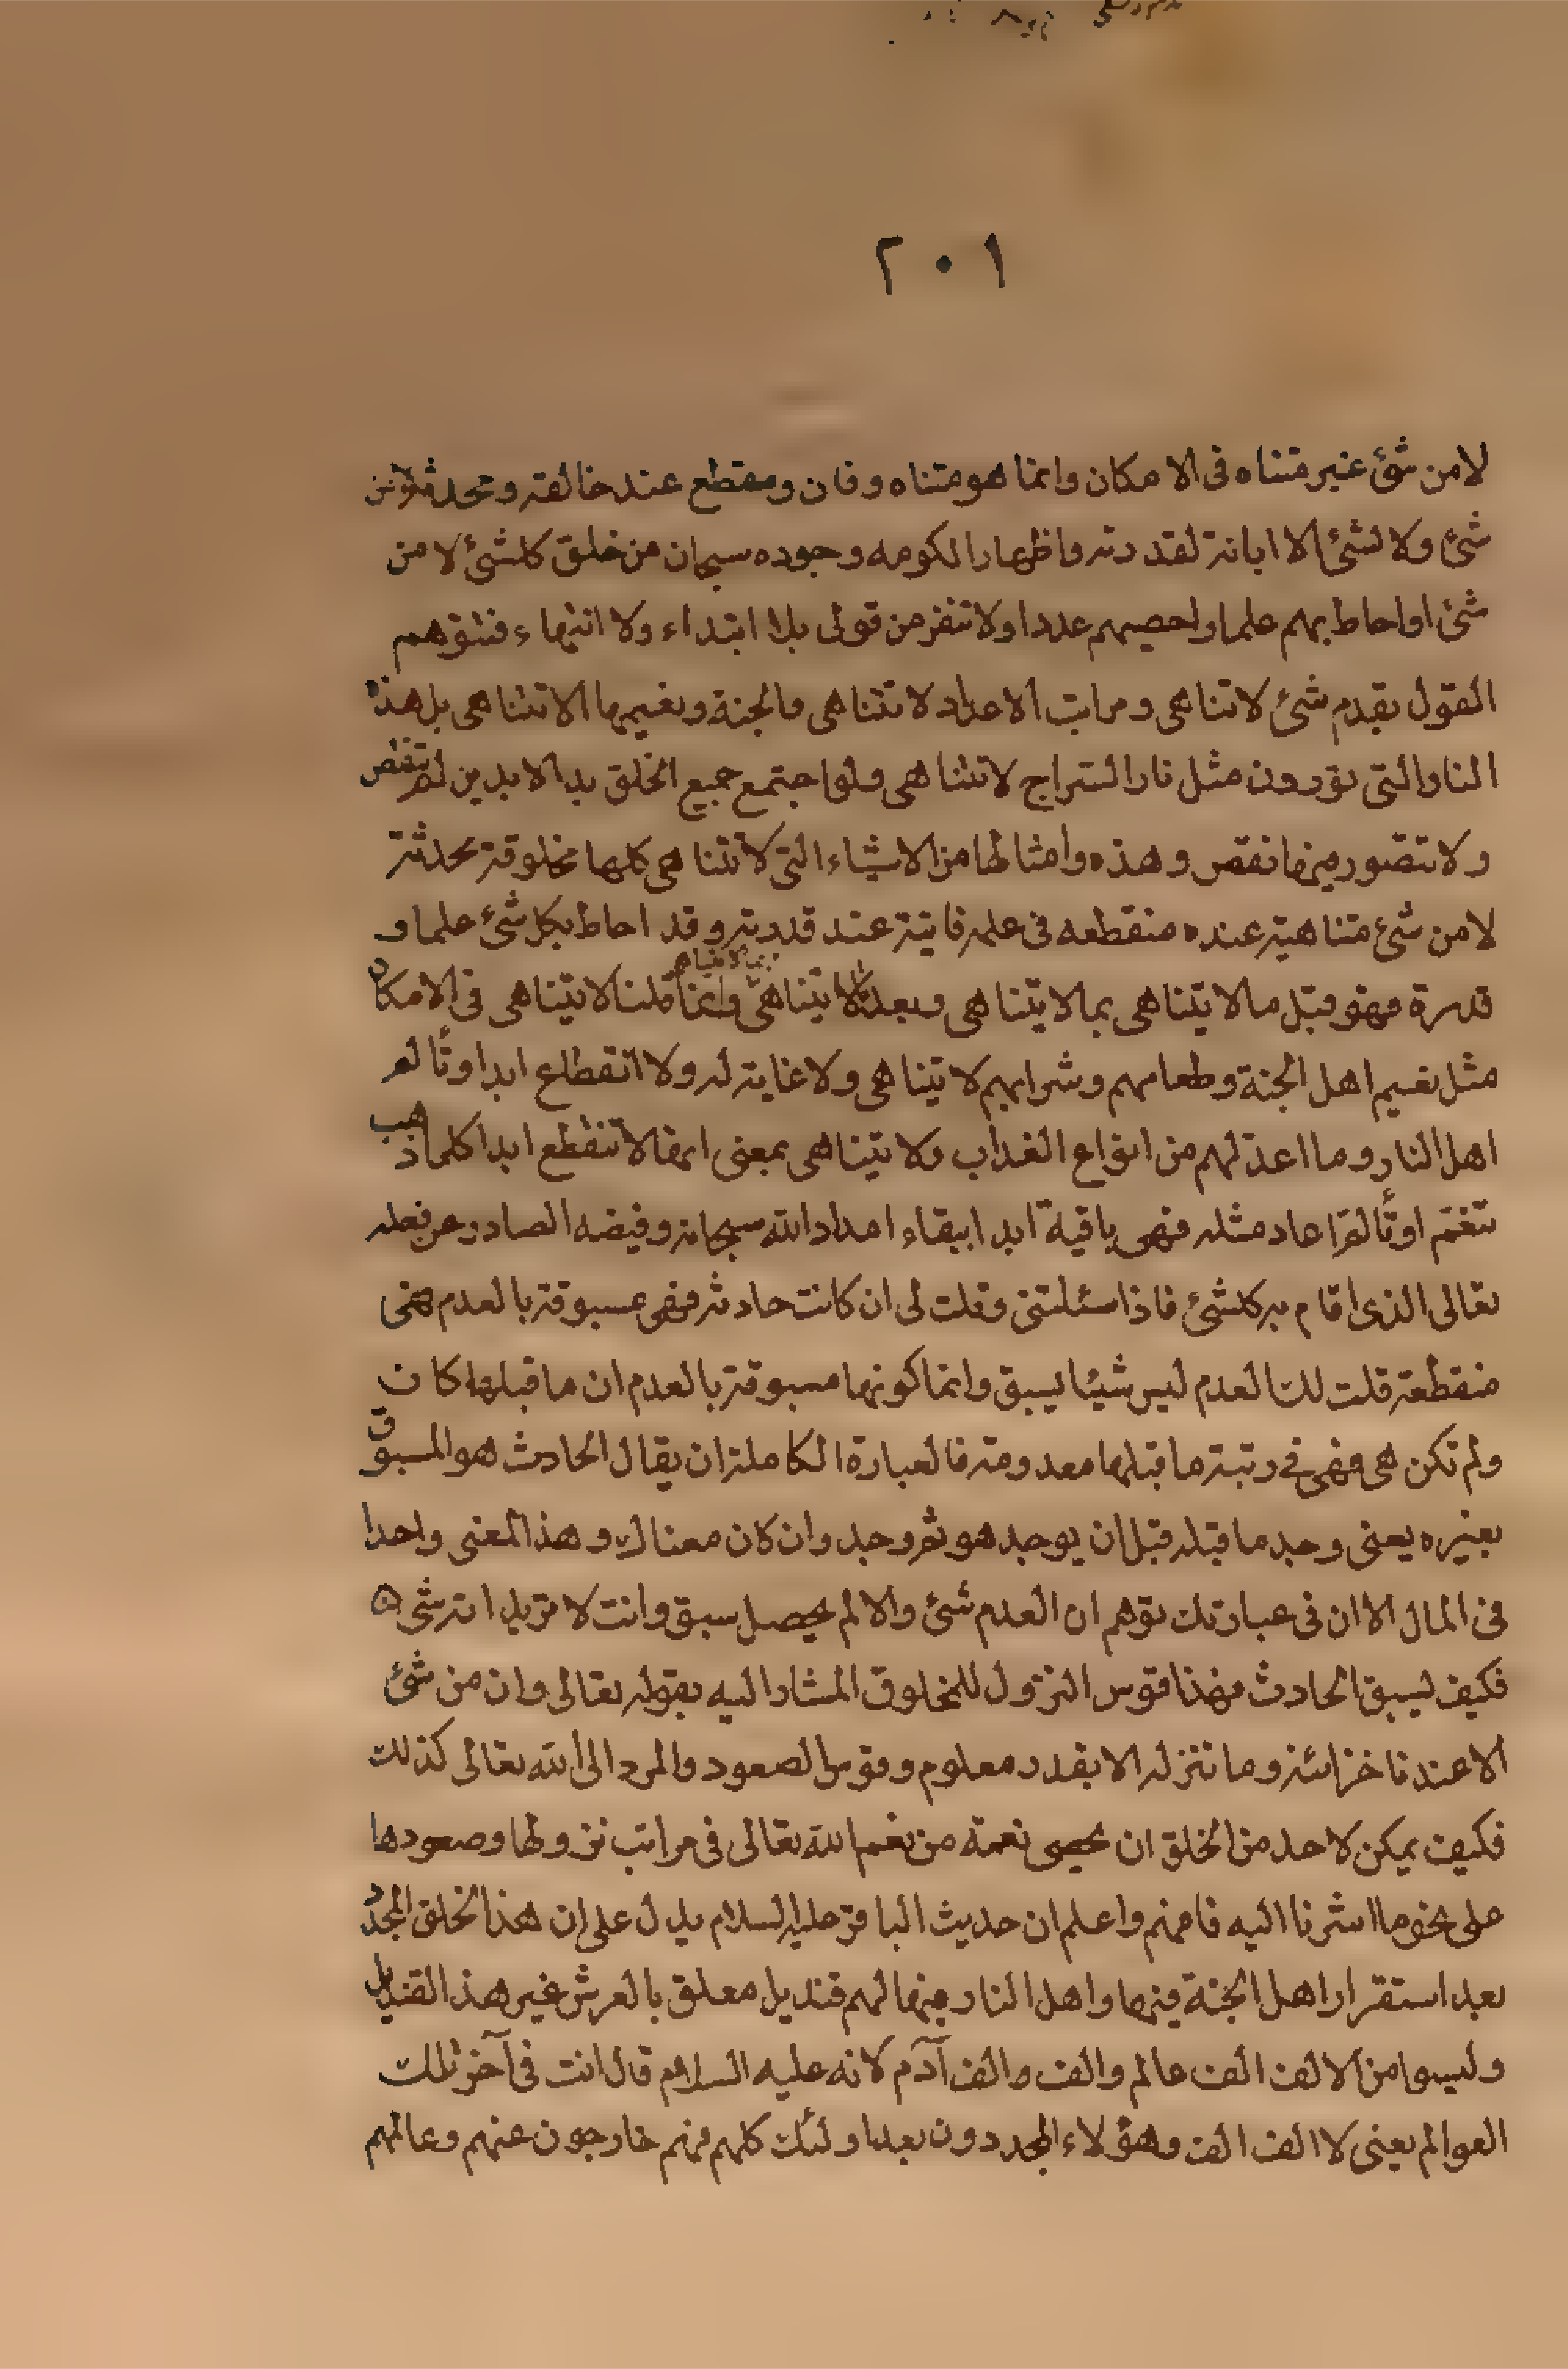 ٢٠١
لا من شئ غير متناه فى الامكان وانما هو متناه وفان ومنقطع عند خالقه ومحدثه لا من
شئ ولا لشئ الا ابانة لقدرته واظهارا لكرمه وجوده سبحان من خلق كلشئ لا من
شئ اواحاط بهم علما واحصيهم عددا ولا تنفر من قولى بلا ابتداء ولا انتهاء فتتوهم
القول بقدم شئ لا تناهى ومراتب الاعداد لا تتناهى والجنة ونعيمها لا تتناهى بل هذه
النار التى تورون مثل نار السراج لا تتناهى ولو اجتمع جميع الخلق ابد الابدين لم تنقص
ولا تتصور منها نقص وهذه وامثالها من الاشياء التى لا تتناهى كلها مخلوقة محدثة
لا من شئ متناهية عنده منقطعه فى علمه فانية عند قدرته وقد احاط بكل شئ علما و
قدرة فهو قبل ما لا يتناهى بما لا يتناهى وبعد ما لا يتناهى بما لا يتناهى وانما قلنا لا يتناهى فى الامكان
مثل نعيم اهل الجنة وطعامهم وشرابهم لا يتناهى ولا غاية له ولا انقطاع ابدا وتألم
اهل النار وما اعد لهم من انواع العذاب ولا يتناهى بمعنى انها لا تنقطع ابدا كلما ذهب
تنعم اوتألم اعاد مثله فهى باقية ابدا ببقاء امداد الله سبحانه وفيضه الصادر عن فعله
تعالى الذى اقام به كلشئ فاذا سئلتنى وقلت لى ان كانت حادثة فهى مسبوقة بالعدم فهى
منقطعة قلت لك العدم ليس شيئا يسبق وانما كونها مسبوقة بالعدم ان ما قبلها كان
ولم تكن هى فهى فى رتبة ما قبلها معدومة فالعبارة الكاملة ان يقال الحادث هو المسبوق
بغيره يعنى وجد ما قبله قبل ان يوجد هو ثم وجد وان كان معناك وهذا المعنى واحدا
فى المال الا ان فى عبارتك توهم ان العدم شئ والا لم يحصل سبق وانت لا تريد انه شئ
فكيف يسبق الحادث فهذا قوس النزول للمخلوق المشار اليه بقوله تعالى وان من شئ
الا عندنا خزائنه وما ننزله الا بقدر معلوم وقوس الصعود والمرد الى الله تعالى كذلك
فكيف يمكن لاحد من الخلق ان يحصى نعمة من نعم الله تعالى فى مراتب نزولها وصعودها
على نحو ما اشرنا اليه فافهم واعلم ان حديث الباقر عليه السلام يدل على ان هذا الخلق المجدد
بعد استقرار اهل الجنة فيها واهل النار فيها لهم قنديل معلق بالعرش غير هذا القنديل
وليسوا من الالف الف عالم والف والف آدم لانه عليه السلام قال انت فى آخر تلك
العوالم يعنى لا الف الف وهؤلاء المجددون بعد اولئك كلهم فهم خارجون عنهم وعالمهم